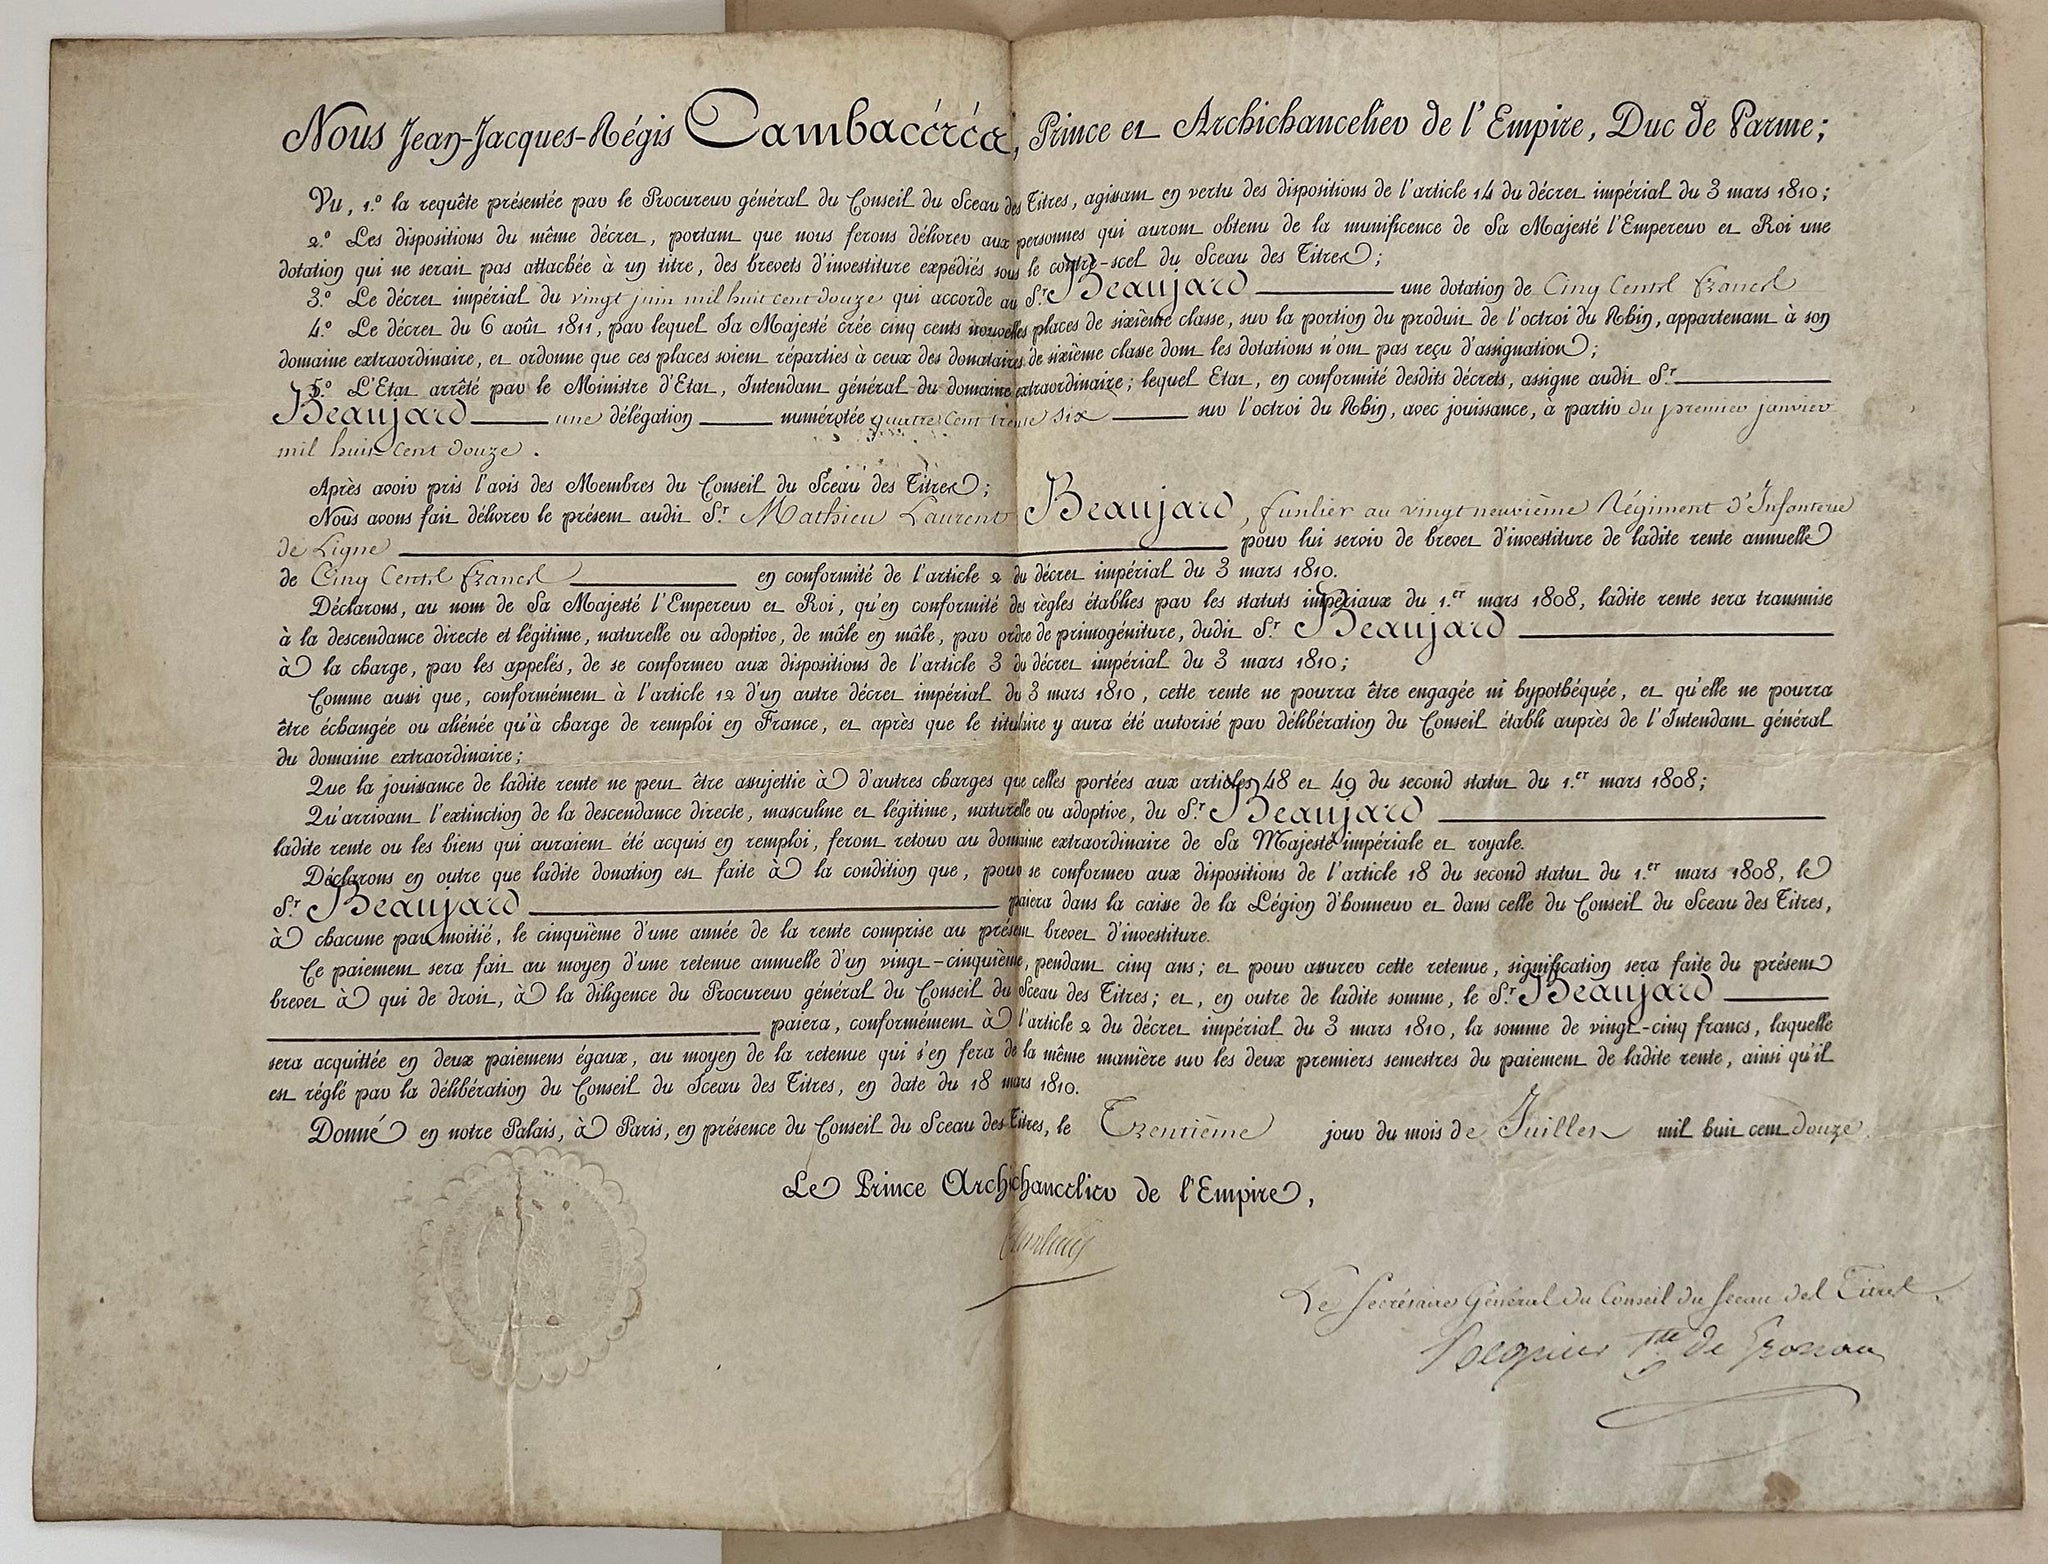 Nous Jean-Jacques-Régis Cambacérès, Prince et Archichancelier de l'Empire, Duc de Parme;
Vu, 1.º la requête présentée par le Procureur général du Conseil du Sceau des Titres, agissant en vertu des dispositions de l'article 14 du décret impérial du 3 mars 1810;
2.º Les dispositions du même décret, portant que nous ferons délivrer aux personnes qui auront obtenu de la munificence de Sa Majesté l'Empereur et Roi une
dotation qui ne serait pas attachée à un titre, des brevets d'investiture expédiés sous le contre-scel du Sceau des Titres;
3.º Le décret impérial du vingt juin mil huit cent douze qui accorde au S.r Beaujard une dotation de Cinq Cents Francs
4.º Le décret du 6 août 1811, par lequel Sa Majesté crée cinq cents nouvelles places de sixième classe, sur la portion du produit de l'octroi du Rhin, appartenant à son
domaine extraordinaire, et ordonne que ces places soient réparties à ceux des donataires de sixième classe dont les dotations n'ont pas reçu d'assignation;
5.º L'Etat arrêté par le Ministre d'Etat, Intendant général du domaine extraordinaire; lequel Etat, en conformité desdits décrets, assigne audit S.r
Beaujard une délégation numérotée quatre cent trente six sur l'octroi du Rhin, avec jouissance, à partir du premier janvier
mil huit cent douze.
Après avoir pris l'avis des Membres du Conseil du Sceau des Titres;
Nous avons fait délivrer le présent audit S.r Mathieu Laurent Beaujard, fusilier au vingt neuvième Régiment d'Infanterie
de Ligne pour lui servir de brevet d'investiture de ladite rente annuelle
de Cinq Cents Francs en conformité de l'article 2 du décret impérial du 3 mars 1810.
Déclarons, au nom de Sa Majesté l'Empereur et Roi, qu'en conformité des règles établies par les statuts impériaux du 1.er mars 1808, ladite rente sera transmise
à la descendance directe et légitime, naturelle ou adoptive, de mâle en mâle, par ordre de primogéniture, dudit S.r Beaujard
à la charge, par les appelés, de se conformer aux dispositions de l'article 3 du décret impérial du 3 mars 1810;
Comme aussi que, conformément à l'article 12 d'un autre décret impérial du 3 mars 1810, cette rente ne pourra être engagée ni hypothéquée, et qu'elle ne pourra
être échangée ou aliénée qu'à charge de remploi en France, et après que le titulaire y aura été autorisé par délibération du Conseil établi auprès de l'Intendant général
du domaine extraordinaire;
Que la jouissance de ladite rente ne peut être assujettie à d'autres charges que celles portées aux articles 48 et 49 du second statut du 1.er mars 1808;
Qu'arrivant l'extinction de la descendance directe, masculine et légitime, naturelle ou adoptive, du S.r Beaujard
ladite rente ou les biens qui auraient été acquis en remploi, feront retour au domaine extraordinaire de Sa Majesté impériale et royale.
Déclarons en outre que ladite donation est faite à la condition que, pour se conformer aux dispositions de l'article 18 du second statut du 1.er mars 1808, le
S.r Beaujard paiera dans la caisse de la Légion d'honneur et dans celle du Conseil du Sceau des Titres,
à chacune par moitié, le cinquième d'une année de la rente comprise au présent brevet d'investiture.
Ce paiement sera fait au moyen d'une retenue annuelle d'un vingt-cinquième, pendant cinq ans; et pour assurer cette retenue, signification sera faite du présent
brevet à qui de droit, à la diligence du Procureur général du Conseil du Sceau des Titres; et, en outre de ladite somme, le S.r Beaujard
paiera, conformément à l'article 2 du décret impérial du 3 mars 1810, la somme de vingt-cinq francs, laquelle
sera acquittée en deux paiemens égaux, au moyen de la retenue qui s'en fera de la même manière sur les deux premiers semestres du paiement de ladite rente, ainsi qu'il
est réglé par la délibération du Conseil du Sceau des Titres, en date du 18 mars 1810.
Donné en notre Palais, à Paris, en présence du Conseil du Sceau des Titres, le Trentième jour du mois de Juillet mil huit cent douze.
Le Prince Archichancelier de l'Empire,
Le Secrétaire Général du Conseil du Sceau des Titres.